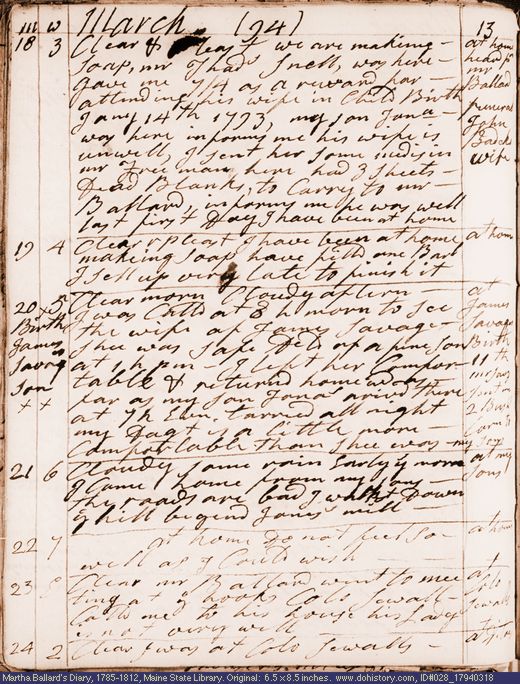 m w March (94) 13
18 3 Clear & Pleast we are making
at home
Soap, mr Thads Snell, was here
heard of
gave me 7/4 as a reward for
mr
attending his wife in Child Birth
Ballard
Jany 14th 1793, my son Jona
funeral
was here informs me his wife is
John
unwell, I sent her some medisin
mr Freeman here had 3 sheets
wife
Dead Blank, to Carry to mr
Ballard, informs me he was well
last first Day I have been at home
19 4 Clear & Pleast I have been at home,
at home
making soap have filld one Barl
I sett up very late to finish it
20 5 Clear morn Cloudy aftern
at
Birth
I was Calld at 8 h morn to see
James
James
the wife of James Savage
Savage
Savag
Shee was safe Dld of a fine son
Birth
Son
at 1 h pm I left her Comfor
11th
x x
table & returned home was
far as my son Jonas arivd there
at 7 h Even tarried all night
my Dagt is a little more
Comfortable than shee was
21 6 Cloudy some rain Early y morn
at my
I Came home from my sons
sons
the roads are bad I walkt Down
y hill beyond Jones' mill
22 7 at home Do not feel so
at home
well as I Could wish
23 Clear mr Ballard went to mee
at
ting at y hook, Colo Sewall
Colo
Calld me to his house his Lady
Sewalls
is not very well
24 2 Clear I was at Colo Sewalls
Martha Ballard's Diary, 1785-1812, Maine State Library. Original: 6.5 x 8.5 inches. www.dohistory.com, ID#028_17940318